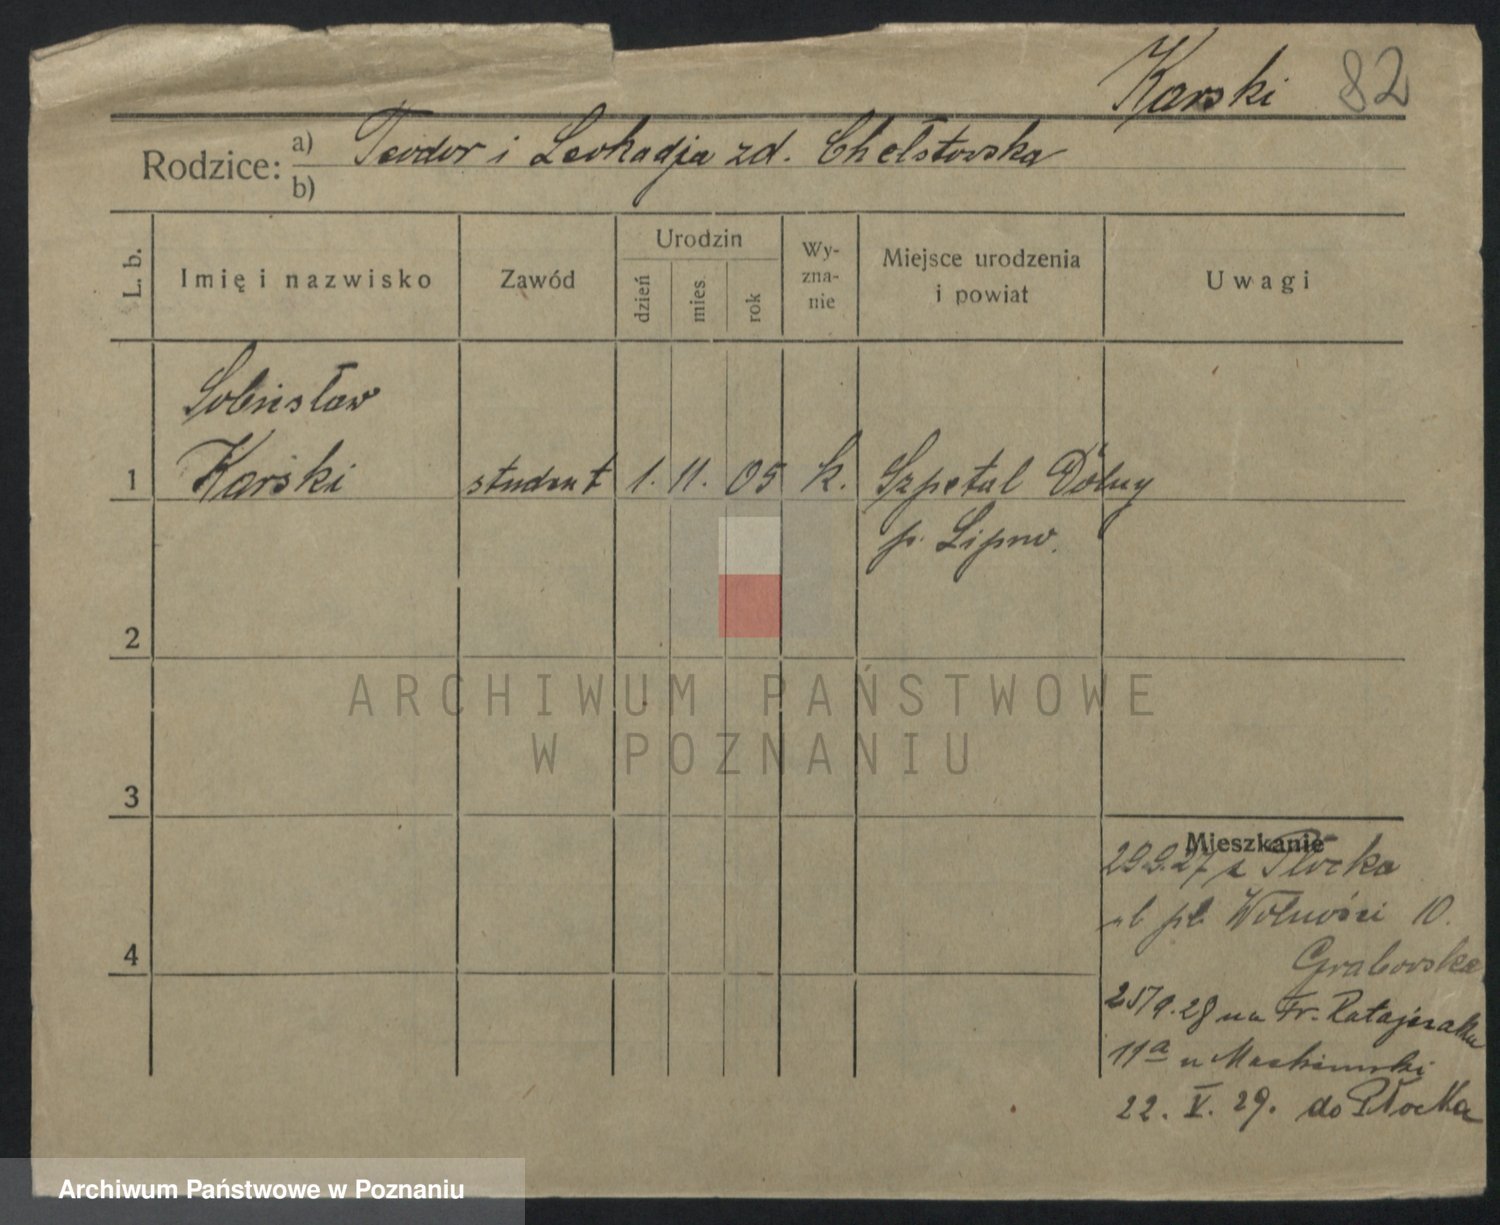 Karski 82
Rodzice: a) Teodor i Leokadja zd. Chełstowska
b)
L. b. Imię i nazwisko Zawód Urodzin dzień mies. rok Wy-zna-nie Miejsce urodzenia i powiat Uwagi
Sobiesław
1 Karski student 1. 11. 05 k. Szpetal Dolny
p. Lipno.
2
ARCHIWUM PAŃSTWOWE
W POZNANIU
3
Mieszkanie
29.9.27 z Płocka
pl. Wolności 10.
Grabowska
25/9.28 na Fr. Ratajczaka
11a u
22. V. 29. do Płocka
4
Archiwum Państwowe w Poznaniu